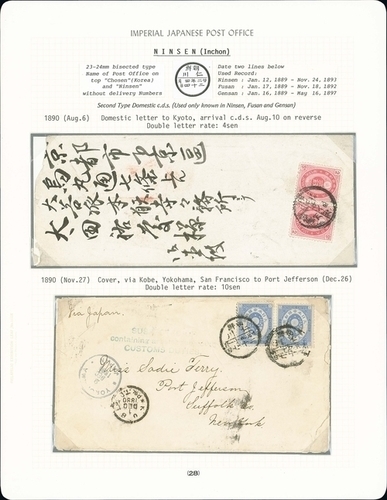 IMPERIAL JAPANESE POST OFFICE
NINSEN (Inchon)
23-24mm bisected type
Name of Post Office on
top "Chosen"(Korea)
and "Ninsen"
without delivery Numbers
Date two lines below
Used Record:
Ninsen : Jan.12, 1889 - Nov.24, 1893
Fusan : Jan.17, 1889 - Nov.18, 1892
Gensan : Jan.16, 1889 - May 16, 1897
Second Type Domestic c.d.s. (Used only known in Ninsen, Fusan and Gensan)
1890 (Aug.6) Domestic letter to Kyoto, arrival c.d.s. Aug.10 on reverse
Double letter rate: 4sen
京都市下京區
烏丸通七條上
大谷派本願寺
1890 (Nov.27) Cover, via Kobe, Yokohama, San Francisco to Port Jefferson (Dec.26)
Double letter rate: 10sen
Via Japan.
CUSTOMS
Miss Sadie Terry.
Port Jefferson
Suffolk Co
New York
(28)